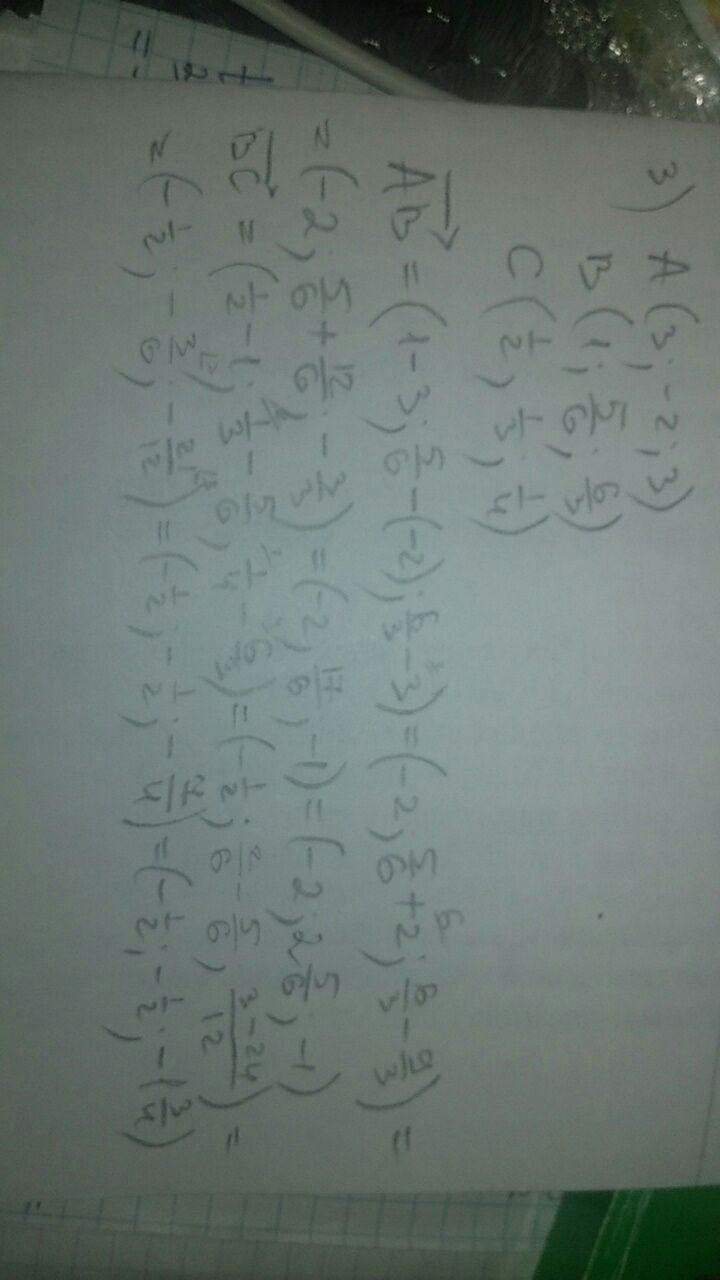 3) A (3; -2; 3)
B (1; 5/6; 6/3)
C (1/2; 1/3; 1/4)
AB = (1-3; 5/6-(-2); 6/3-3) = (-2; 5/6+2; 6/3-9/3) =
= (-2; 5/6+12/6; -3/3) = (-2; 17/6; -1) = (-2; 2 5/6; -1)
BC = (1/2-1; 1/3-5/6; 1/4-6/3) = (-1/2; 2/6-5/6; 3-24/12) =
= (-1/2; -3/6; -21/12) = (-1/2; -1/2; -7/4) = (-1/2; -1/2; -1 3/4)